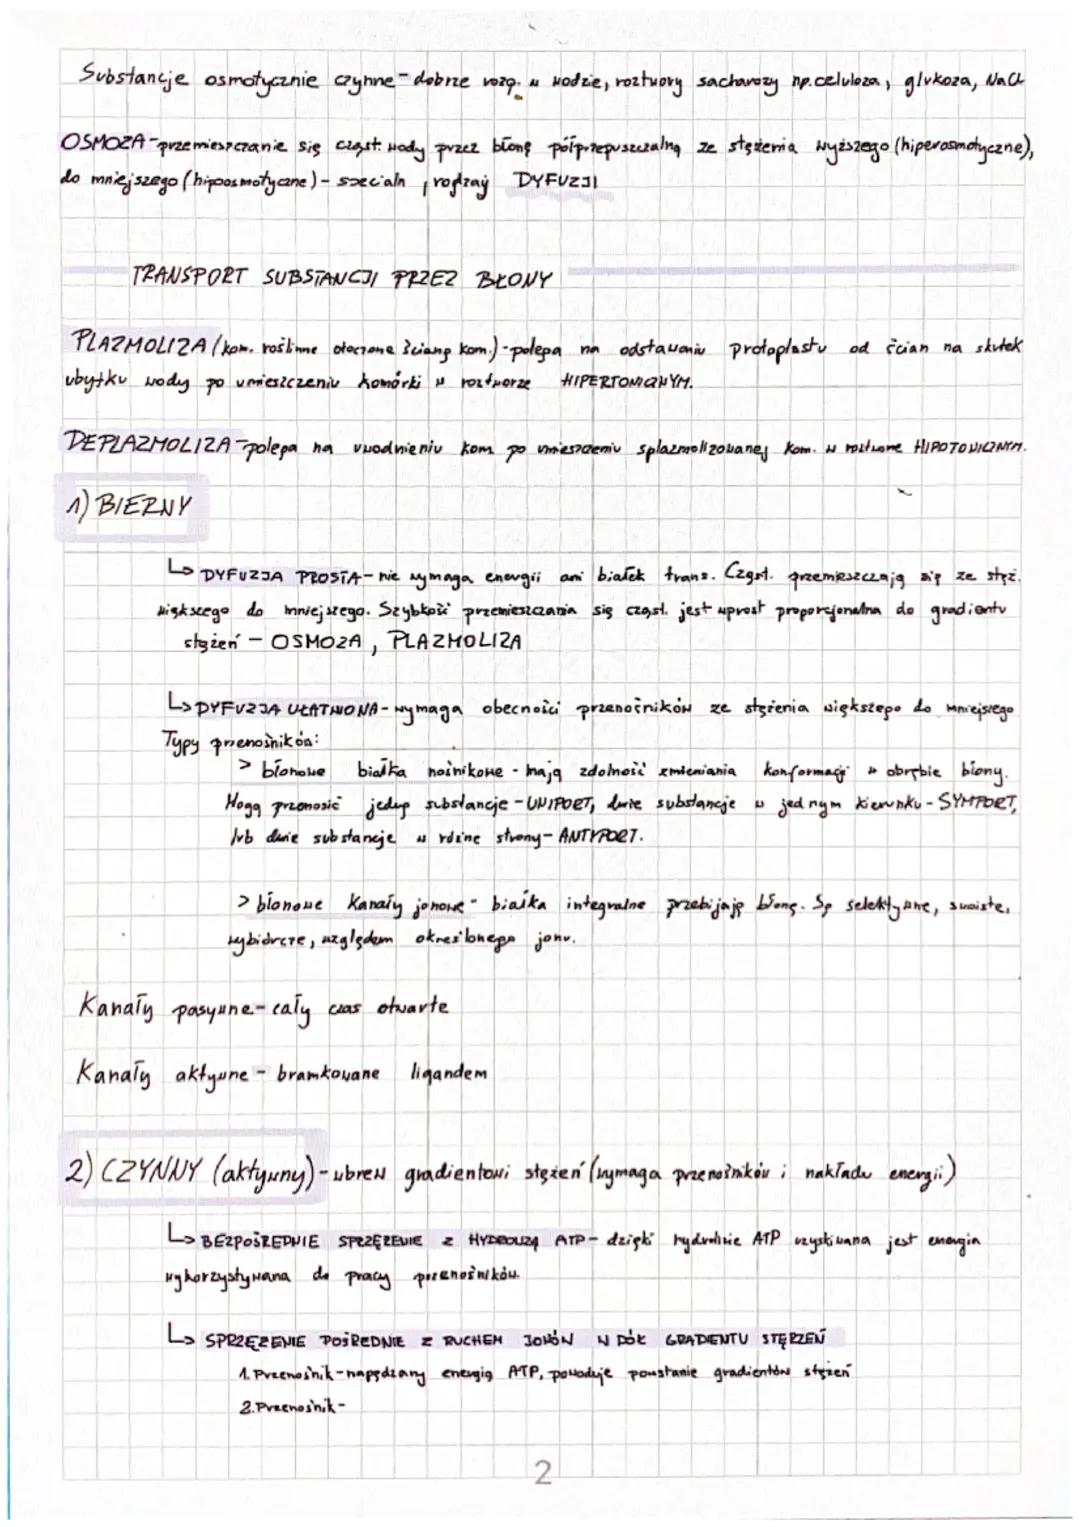 Substancje osmotycznie czynne - dobrze rozp. w wodzie, roztwory sacharozy np. celuloza, glukoza, NaCl
OSMOZA - przemieszczanie się cząst. wody przez błonę półprzepuszczalną ze stężenia wyższego (hiperosmotyczne),
do mniejszego (hipoosmotyczne) - specjaln rodzaj DYFUZJI
TRANSPORT SUBSTANCJI PRZEZ BŁONY
PLAZMOLIZA (kom. roślinne otoczone ścianą kom.) - polega na odstawaniu protoplastu od ścian na skutek
ubytku wody po umieszczeniu komórki w roztworze HIPERTONICZNYM.
DEPLAZMOLIZA - polega na uwodnieniu kom po umieszczeniu splazmolizowanej kom. w roztworze HIPOTONICZNYM.
1) BIERNY
↳ DYFUZJA PROSTA - nie wymaga energii ani białek trans. Cząst. przemieszczają się ze stęż.
większego do mniejszego. Szybkość przemieszczania się cząst. jest wprost proporcjonalna do gradientu
stężeń - OSMOZA, PLAZMOLIZA
↳ DYFUZJA UŁATWIONA - wymaga obecności przenośników ze stężenia większego do mniejszego
Typy przenośników:
> błonowe białka nośnikowe - mają zdolność zmieniania konformacji w obrębie błony.
Mogą przenosić jedną substancje - UNIPORT, dwie substancje w jednym kierunku - SYMPORT,
lub dwie substancje w różne strony - ANTYPORT.
> błonowe kanały jonowe - białka integralne przebijają błonę. Są selektywne, swoiste,
wybiórcze, względem określonego jonu.
Kanały pasywne - cały czas otwarte
Kanały aktywne - bramkowane ligandem
2) CZYNNY (aktywny) - wbrew gradientowi stężeń (wymaga przenośników i nakładu energii)
↳ BEZPOŚREDNIE SPRZĘŻENIE Z HYDROLIZĄ ATP - dzięki hydrolizie ATP uzyskiwana jest energia
wykorzystywana do pracy przenośników.
↳ SPRZĘŻENIE POŚREDNIE Z RUCHEM JONÓW W DÓŁ GRADIENTU STĘŻEŃ
1. Przenośnik - napędzany energią ATP, powoduje powstanie gradientów stężeń
2. Przenośnik -
2